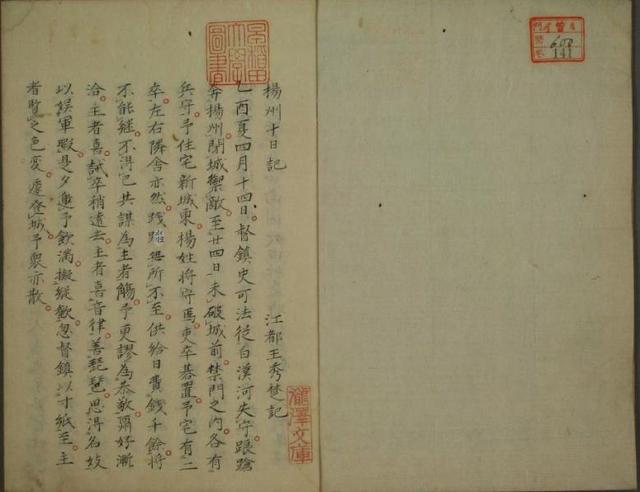 揚州十日記
江都王秀楚記
乙酉夏四月十四日督鎮史可法従白漢河失守踉蹌
奔揚州閉城禦敵至廿四日未破城前禁門之内各有
兵守予住宅新城東楊姓将守焉吏卒碁置予宅有二
卒左右隣舎亦然践踏無所不至供給日費錢千餘将
不能継不得已共謀為主者觴予更謬為恭敬爾好漸
洽主者喜誡卒稍遠去主者喜音律善琵琶思得名妓
以娯軍暇是夕邀予飲満擬縦歓忽督鎮以寸紙至主
者覧之色変遽登城予衆亦散
瀧澤文庫